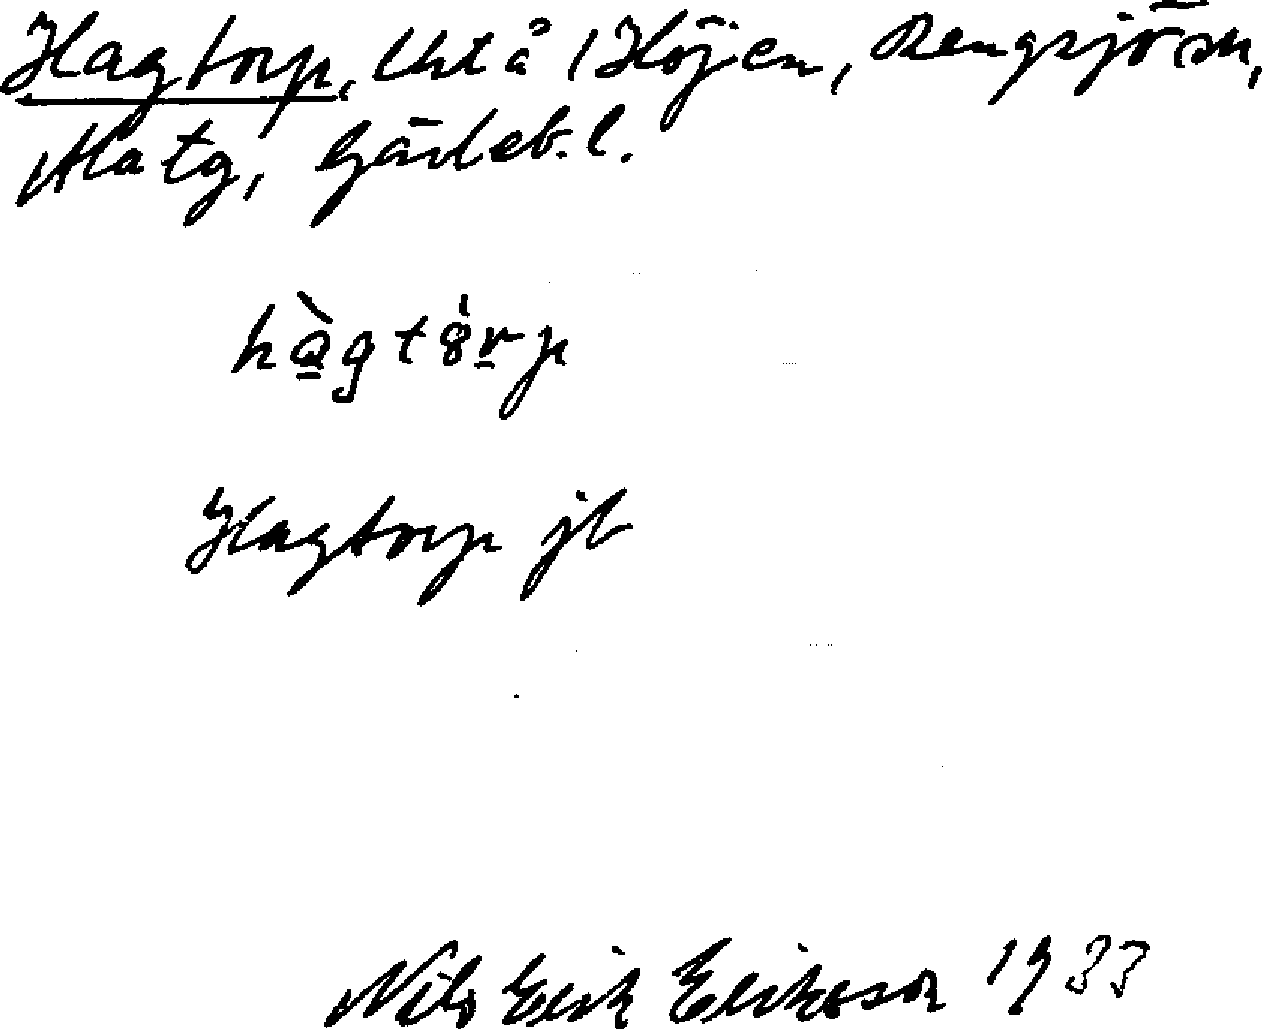 Hagtorp, lht å 1 Höjen, Rengsjö sn,
Matg, Gävleb. l.
hàgtörp
Hagtorp jb
Nils Erik Eriksson 1933